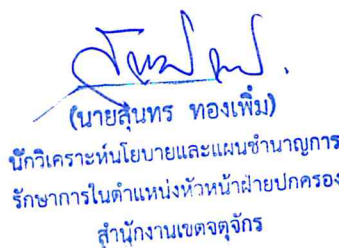 (นายสุนทร ทองเพิ่ม)
นักวิเคราะห์นโยบายและแผนชำนาญการ
รักษาการในตำแหน่งหัวหน้าฝ่ายปกครอง
สำนักงานเขตจตุจักร